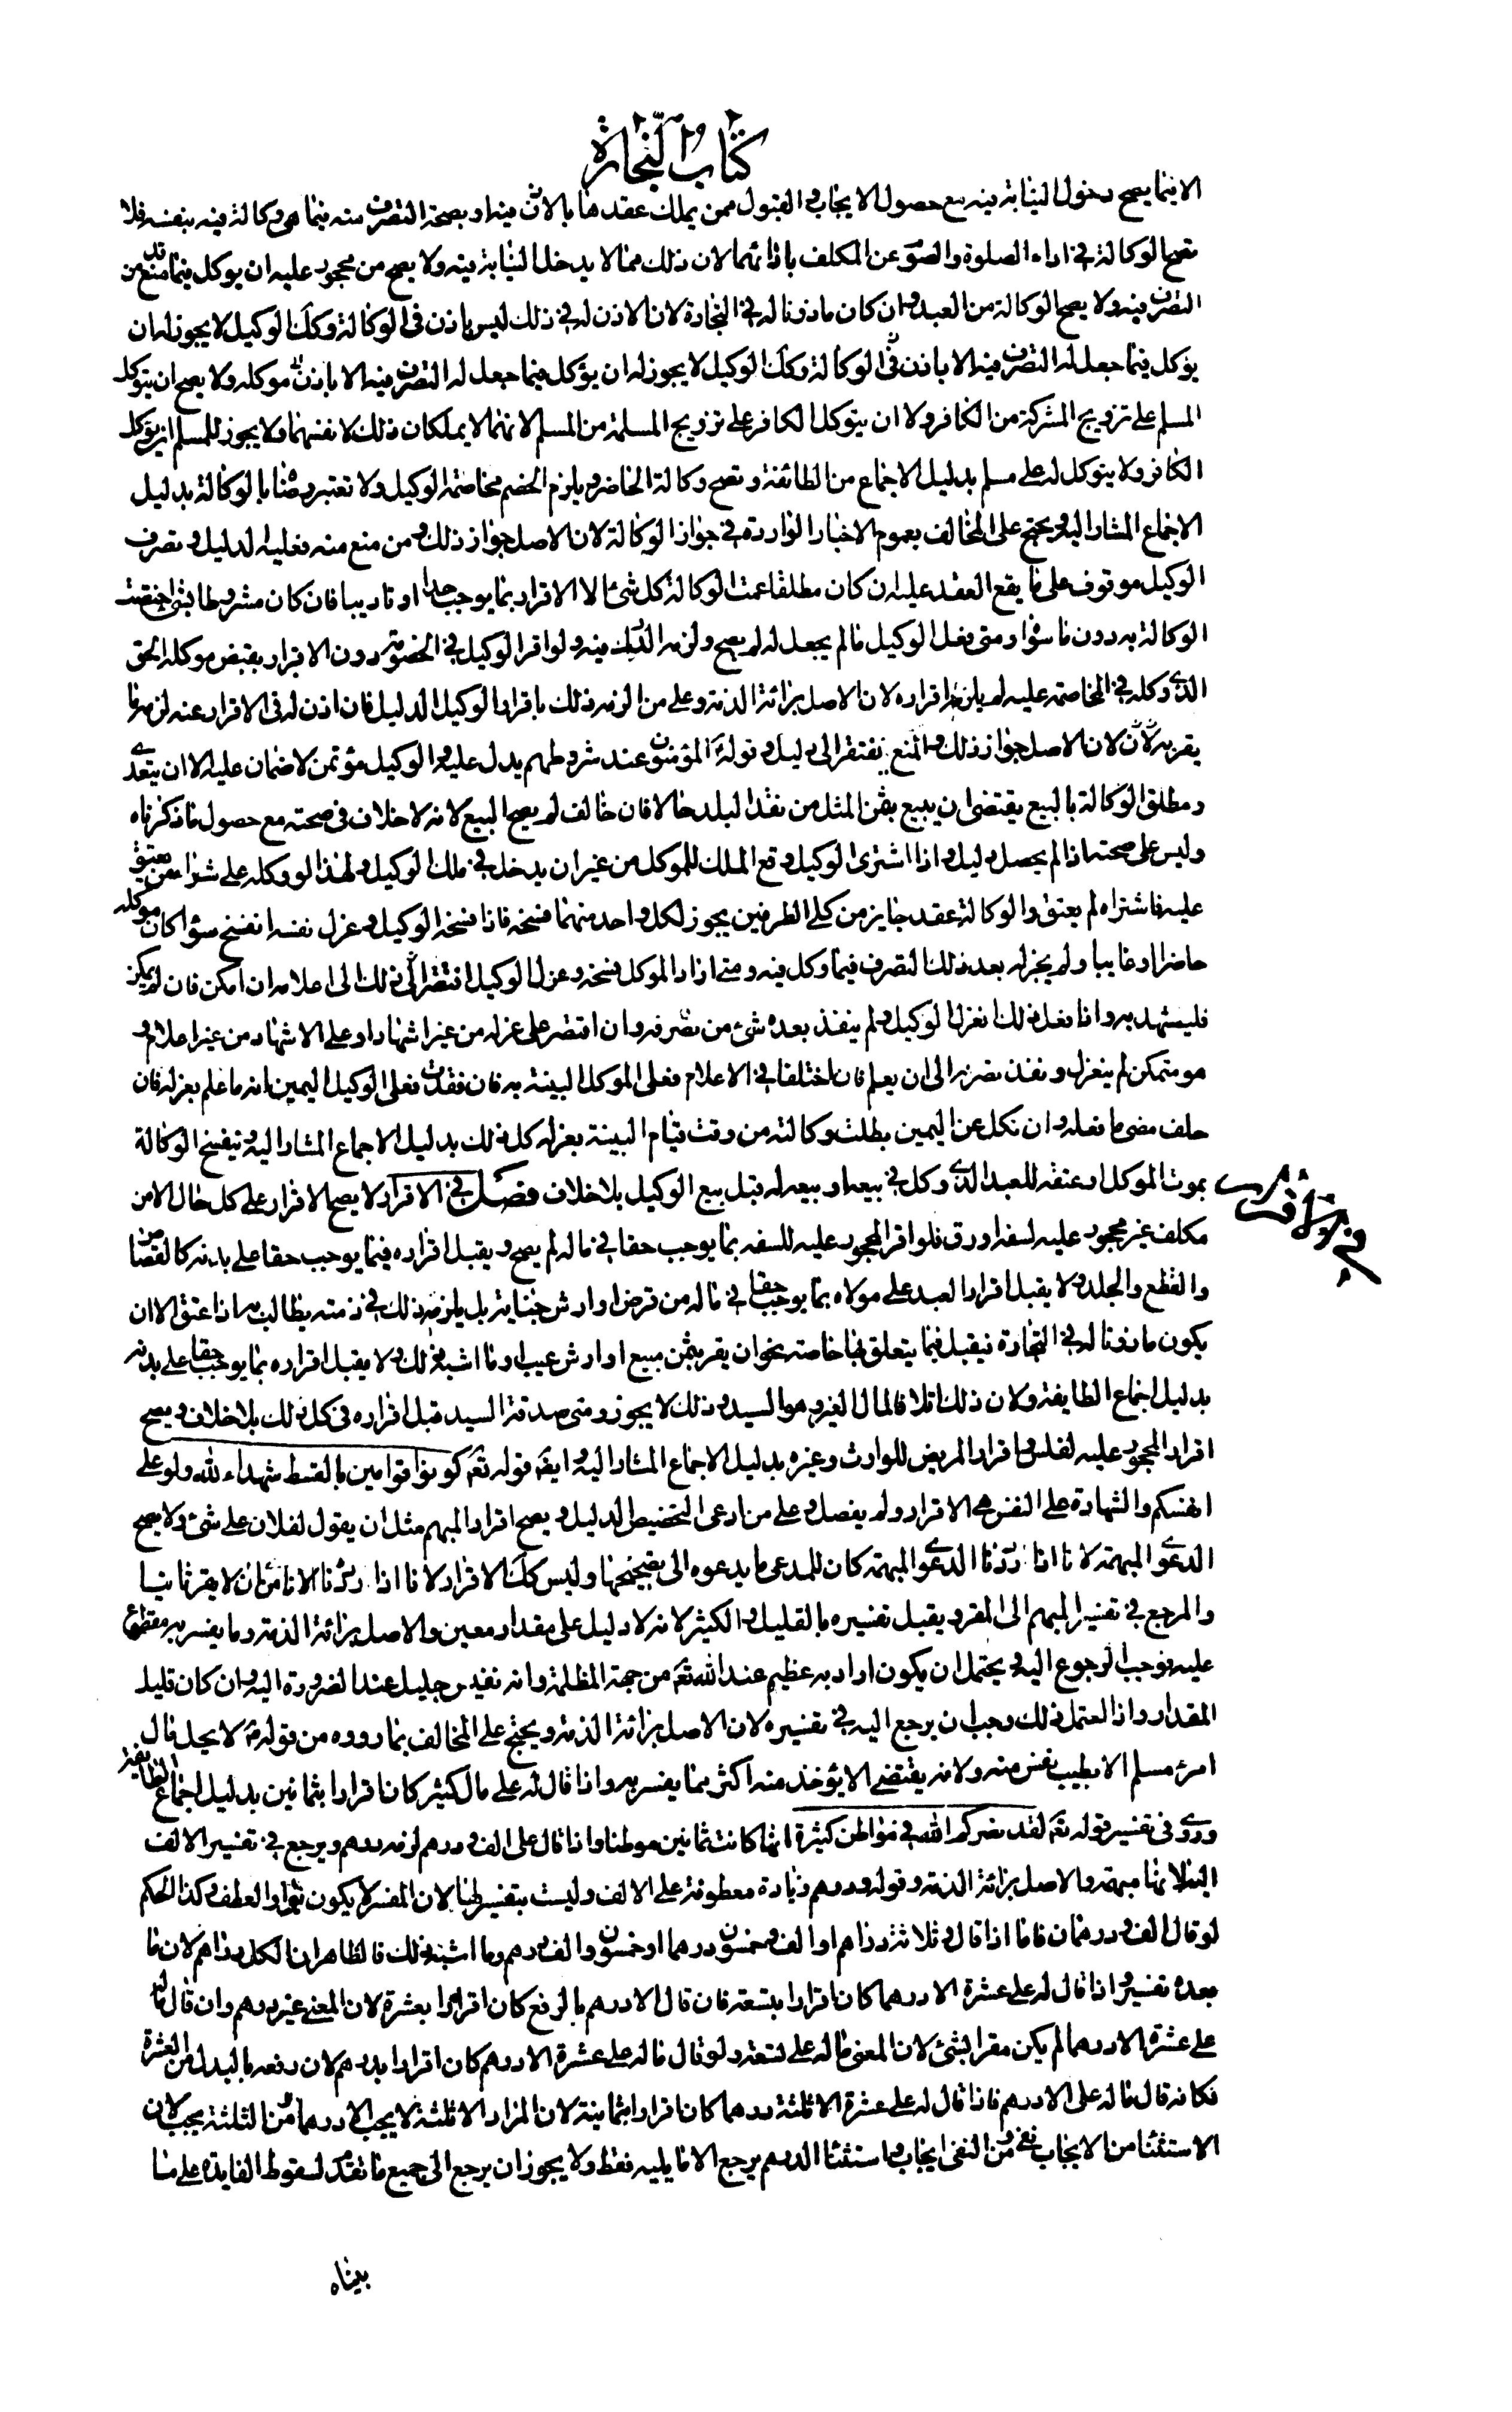 كتاب التجارة
الا فيما يصح دخول النيابة فيه مع حصول الايجاب والقبول ممن يملك عقدها بالاذن فيه او بصحة التصرف منه فيما هو وكالة فيه بنفسه فلا
تصح الوكالة في اداء الصلوة والصوم عن المكلف باذائهما لان ذلك مما لا يدخل النيابة فيه ولا يصح من محجور عليه ان يوكل فيما قد منع من
التصرف فيه ولا يصح الوكالة من العبد وان كان ماذونا له في التجارة لان الاذن له في ذلك ليس باذن في الوكالة وكك الوكيل لا يجوز له ان
يؤكل فيما جعل له التصرف فيه الا باذن في الوكالة وكك الوكيل لا يجوز له ان يؤكل فيما جعل له التصرف فيه الا باذن موكله ولا يصح ان يتوكل
المسلم على تزويج المشركة من الكافر ولا ان يتوكل الكافر على تزويج المسلمة من المسلم لانهما لا يملكان ذلك لانفسهما ولا يجوز للمسلم ان يؤكل
الكافر ولا يتوكل له على مسلم بدليل الاجماع من الطائفة وتصح وكالة الحاضر ويلزم الخصم مخاصمة الوكيل ولا تعتبر رضا بالوكالة بدليل
الاجماع المشار اليه ويحتج على المخالف بعموم الاخبار الواردة في جواز الوكالة لان الاصل جواز ذلك ومن منع منه فعليه الدليل وتصرف
الوكيل موقوف على ما يقع العقد عليه ان كان مطلقا عمت الوكالة كل شئ الا الاقرار بما يوجب حدا او تاديبا فان كان مشروطا بشئ اختصت
الوكالة به دون ما سواه ومتى فعل الوكيل ما لم يجعل له لم يصح ولزمه الدرك فيه ولو اقر الوكيل في الخصومة دون الاقرار بقبض موكله الحق
الذي وكله في المخاصمة عليه لم يلزمه اقراره لان الاصل برائة الذمة وعلى من الزمه ذلك باقرار الوكيل الدليل فان اذن له في الاقرار عنه لزمه ما
يقر به لان الاصل جواز ذلك والمنع يفتقر الى دليل وقوله المؤمنون عند شروطهم يدل عليه والوكيل مؤتمن لا ضمان عليه الا ان يتعدى
ومطلق الوكالة بالبيع يقتضى ان يبيع بثمن المثل من نقد البلد حالا فان خالف لم يصح البيع لانه لا خلاف في صحته مع حصول ما ذكرناه
وليس على صحته اذا لم يحصل دليل واذا اشترى الوكيل وقع الملك للموكل من غير ان يدخل في ملك الوكيل ولهذا لو وكله على شراء من يعتق
عليه فاشتراه لم يعتق والوكالة عقد جايز من كلى الطرفين يجوز لكل واحد منهما فسخه فاذا فسخه الوكيل وعزل نفسه انفسخ سواء كان موكله
حاضرا او غايبا ولم يجز له بعد ذلك التصرف فيما وكل فيه ومتى اراد الموكل فسخه وعزل الوكيل افتقر في ذلك الى اعلامه ان امكن فان لم يمكن
فليشهد به واذا فعل ذلك انعزل الوكيل ولم ينفذ بعده شئ من تصرفه وان اقتصر على عزله من غير اشهاد او على الاشهاد من غير اعلام وهو
متمكن لم ينعزل ونفذ تصرفه الى ان يعلم فان اختلفا في الاعلام فعلى الموكل البينة به فان فقدت فعلى الوكيل اليمين انه ما علم بعزله فان
حلف مضى ما فعله وان نكل عن اليمين بطلت وكالته من وقت قيام البينة بعزله كل ذلك بدليل الاجماع المشار اليه وتنفسخ الوكالة
بموت الموكل او عتقه للعبد الذي وكل في بيعه او بيعه له قبل بيع الوكيل بلا خلاف فصل في الاقرار لا يصح الاقرار على كل حال الا من
مكلف غير محجور عليه لسفه او رق فلو اقر المحجور عليه للسفه بما يوجب حقا في ماله لم يصح ويقبل اقراره فيما يوجب حقا على بدنه كالقصاص
والقطع والجلد ولا يقبل اقرار العبد على مولاه بما يوجب حقا في ماله من قرض او ارش جناية بل يلزمه ذلك في ذمته يطالب به اذا عتق الا ان
يكون ماذونا له في التجارة فيقبل فيما يتعلق بها خاصة نحو ان يقر بثمن مبيع او ارش عيب او ما اشبه ذلك ولا يقبل اقراره بما يوجب حقا على بدنه
بدليل اجماع الطايفة ولان ذلك اتلافا لمال الغير وهو السيد وذلك لا يجوز ومتى صدقه السيد قبل اقراره في كل ذلك بلا خلاف ويصح
اقرار المحجور عليه لفلس واقرار المريض للوارث وغيره بدليل الاجماع المشار اليه وايضا قوله تع كونوا قوامين بالقسط شهداء لله ولو على
انفسكم والشهادة على النفس هي الاقرار ولم يفصل وعلى من ادعى التخصيص الدليل ويصح اقرار المبهم مثل ان يقول لفلان على شئ ولا يصح
الدعوى المبهمة لانا اذا رددنا الدعوى المبهمة كان للمدعى ما يدعوه الى تصحيحها وليس كك الاقرار لانا اذا رددنا لا نامن ان لا يقر ثانيا
والمرجع في تفسير المبهم الى المقر ويقبل تفسيره بالقليل والكثير لانه لا دليل على مقدار معين والاصل برائة الذمة وما يفسر به مقطوع
عليه فوجب الرجوع اليه ويحتمل ان يكون اراد به عظيم عند الله تع من جهة المظلمة وانه نفيس جليل عند الضرورة اليه وان كان قليل
المقدار واذا احتمل ذلك وجب ان يرجع اليه في تفسيره لان الاصل برائة الذمة ويحتج على المخالف بما رووه من قوله لا يحل مال
امرئ مسلم الا بطيب نفس منه ولانه يقتضى الا يؤخذ منه اكثر مما يفسر به واذا قال له على مال كثير كان اقرارا بثمانين بدليل اجماع الطايفة
وروى في تفسير قوله تع لقد نصركم الله في مواطن كثيرة انها كانت ثمانين موطنا واذا قال على الف ودرهم لزمه درهم ويرجع في تفسير الالف
اليه لانها مبهمة والاصل برائة الذمة وقوله ودرهم زيادة معطوفة على الالف وليست بتفسير لها لان المفسر لا يكون بواو العطف وكذا الحكم
لو قال الف ودرهمان فاما اذا قال وثلاثة دراهم او الف وخمسون درهما او خمسون والف درهم وما اشبه ذلك فالظاهر ان الكل دراهم لان ما
بعده تفسير واذا قال له على عشرة الا درهما كان اقرارا بتسعة فان قال الا درهم بالرفع كان اقرارا بعشرة لان المعنى غير درهم وان قال ما له
على عشرة الا درهما لم يكن مقرا بشئ لان المعنى ما له على تسعة ولو قال ما له على عشرة الا درهم كان اقرارا بدرهم لان رفعه بالبدل من العشرة
فكانه قال ما له على الا درهم فاذا قال له على عشرة الا ثلثة درهما كان اقرارا بثمانية لان المراد الا ثلثة لا يجب الا درهما من الثلثة يجب لان
الاستثنا من الايجاب نفى ومن النفى ايجاب واستثنا الدرهم يرجع الا ما يليه فقط ولا يجوز ان يرجع الى جميع ما تقدم لسقوط الفايدة على ما
بيناه